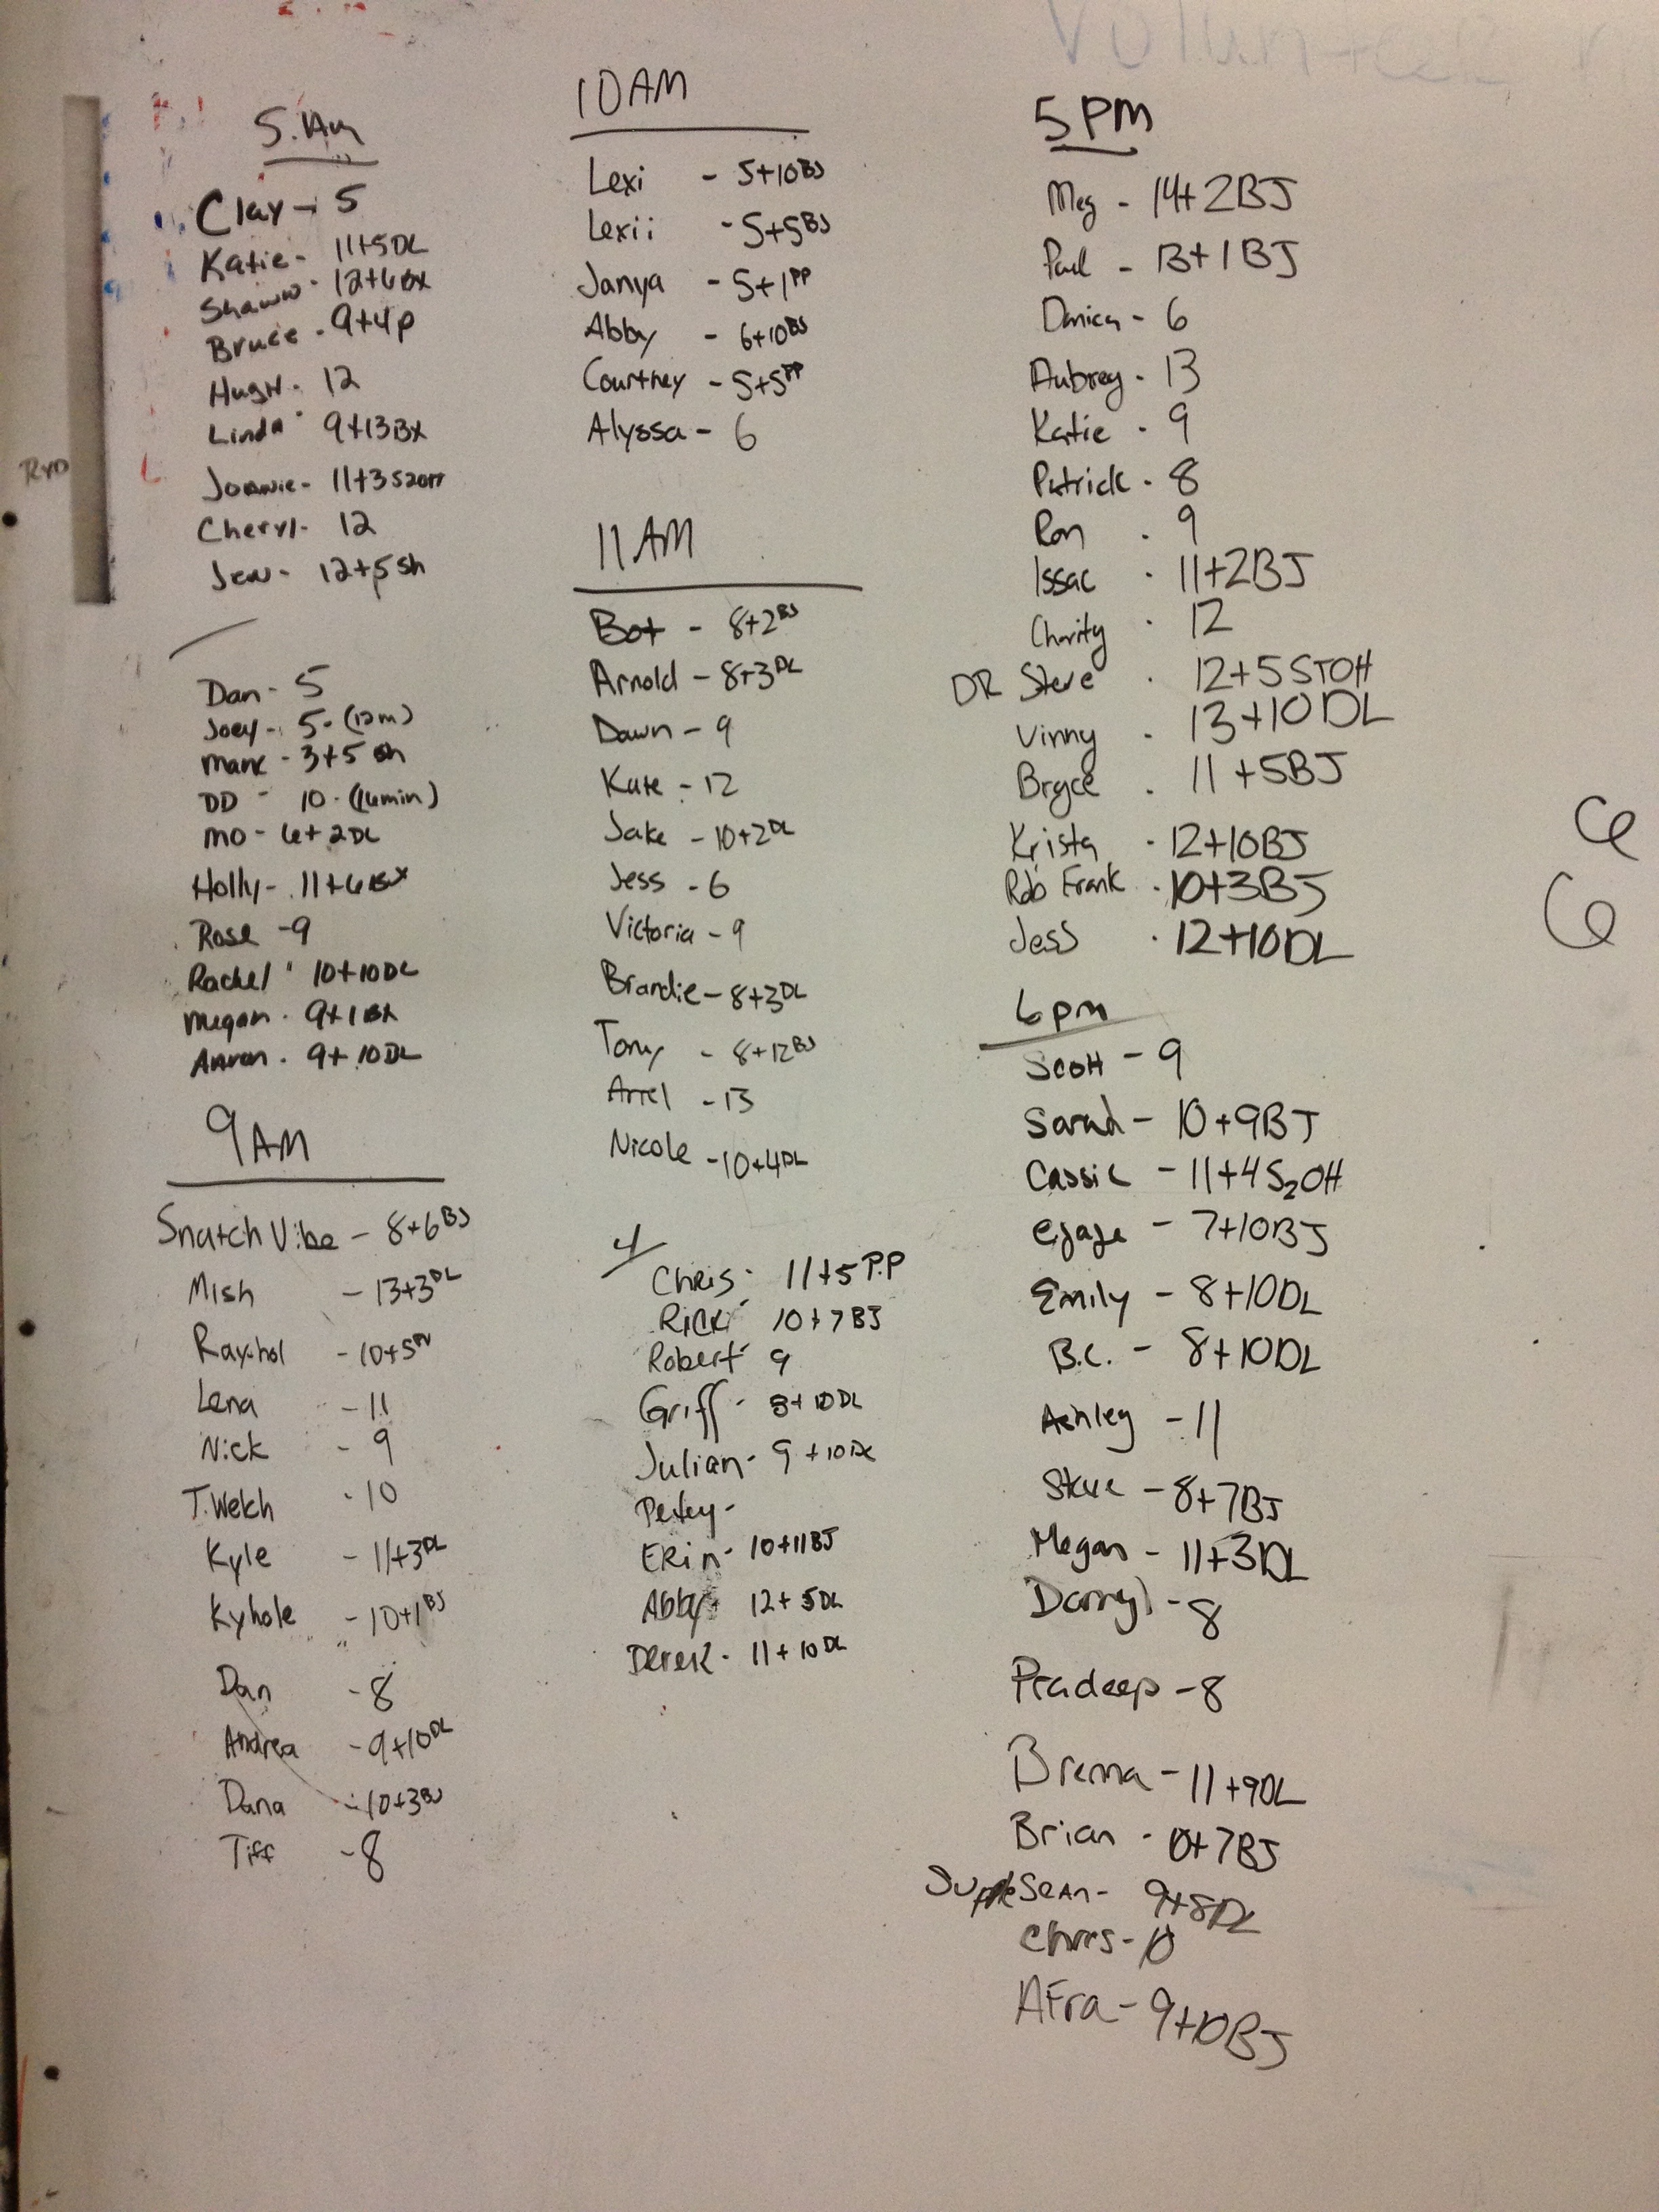 5.AM
Clay - 5
Katie - 11+5DL
Shaww - 12+6BX
Bruce - 9+4P
Hugh - 12
Linda - 9+13BX
Joannie - 11+3S2OH
Cheryl - 12
Jen - 12+5sh
Dan - 5
Joey - 5 - (12m)
Mark - 3+5 sh
DD - 10 - (16min)
MO - 6+2DL
Holly - 11+6BX
Rose - 9
Rachel - 10+10DL
Megan - 9+1BX
Aaron - 9+10DL
9AM
Snatch Vibe - 8+6BJ
Mish - 13+3DL
Raychol - 10+5
Lena - 11
Nick - 9
T.Welch - 10
Kyle - 11+3DL
Kyhole - 10+1BJ
Dan - 8
Andrea - 9+10DL
Dana - 10+3BJ
Tiff - 8
10AM
Lexi - 5+10BJ
Lexii - 5+5BJ
Janya - 5+1PP
Abby - 6+10BJ
Courtney - 5+5PP
Alyssa - 6
11AM
Bot - 8+2BJ
Arnold - 8+3DL
Dawn - 9
Kate - 12
Jake - 10+2DL
Jess - 6
Victoria - 9
Brandie - 8+3DL
Tony - 8+12BJ
Ariel - 13
Nicole - 10+4DL
4
Chris - 11+5 P.P
Rick - 10+7BJ
Robert - 9
Griff - 8+10DL
Julian - 9+10DL
Petey -
Erin - 10+11BJ
Abby - 12+5DL
Derek - 11+10DL
5PM
Meg - 14+2BJ
Paul - 13+1BJ
Danica - 6
Aubrey - 13
Katie - 9
Patrick - 8
Ron - 9
Issac - 11+2BJ
Charity - 12
DR Steve - 12+5STOH
Vinny - 13+10DL
Bryce - 11+5BJ
Krista - 12+10BJ
Rob Frank - 10+3BJ
Jess - 12+10DL
6pm
Scott - 9
Sarah - 10+9BJ
Cassie - 11+4S2OH
7+10BJ
Emily - 8+10DL
B.C. - 8+10DL
Ashley - 11
Steve - 8+7BJ
Megan - 11+3DL
Darryl - 8
Pradeep - 8
Brenna - 11+9DL
Brian - 10+7BJ
Supple Sean - 9+8DL
Chris - 10
Afra - 9+10BJ
RXD
6
6